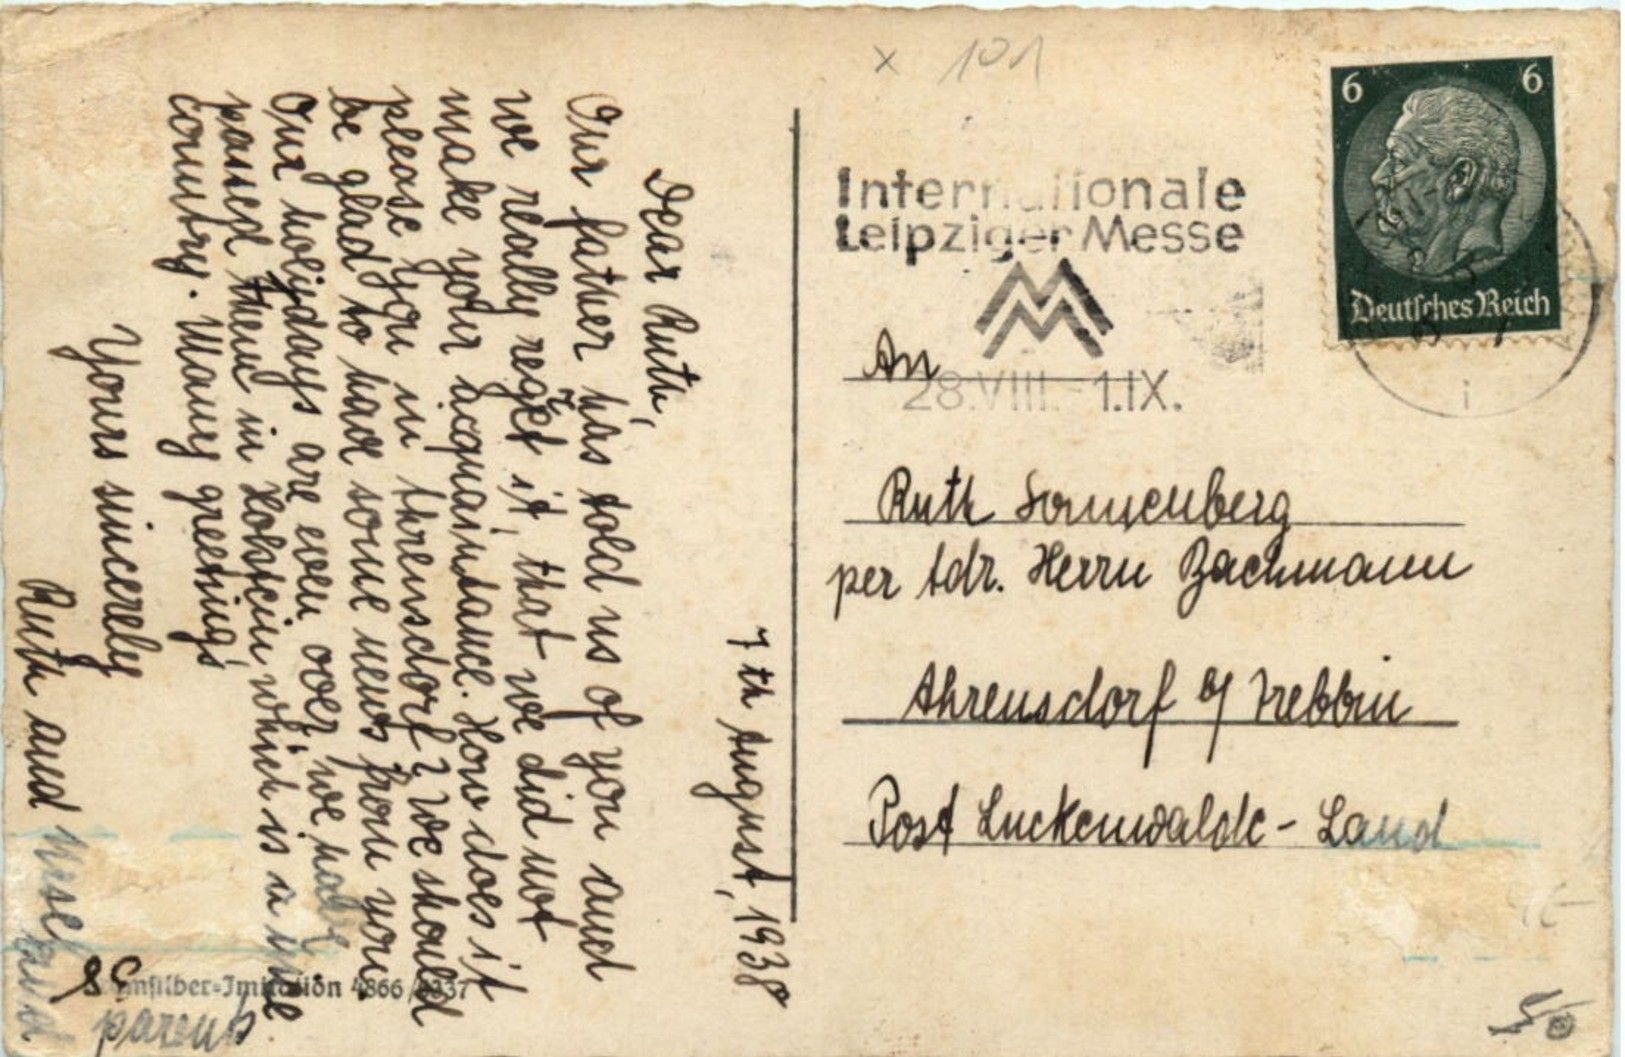 7th August, 1938
Dear Ruth,
Our father has told us of you and
we really reget it, that we did not
make your acquaintance. How does it
please you in Ahrensdorf? We should
be glad to have some news from you.
Our holydays are even over, we have
passed them in Holstein which is a fine
country. Many greetings
Yours sincerely
Ruth and
and
parents
silber-Imitation 4866/
x 101
6 6
Deutsches Reich
Internationale
Leipziger Messe
MM
28.VIII.-1.IX.
i
An
Ruth Sonnenberg
per Adr. Herrn Bachmann
Ahrensdorf b/ Trebbin
Post Luckenwalde-Land